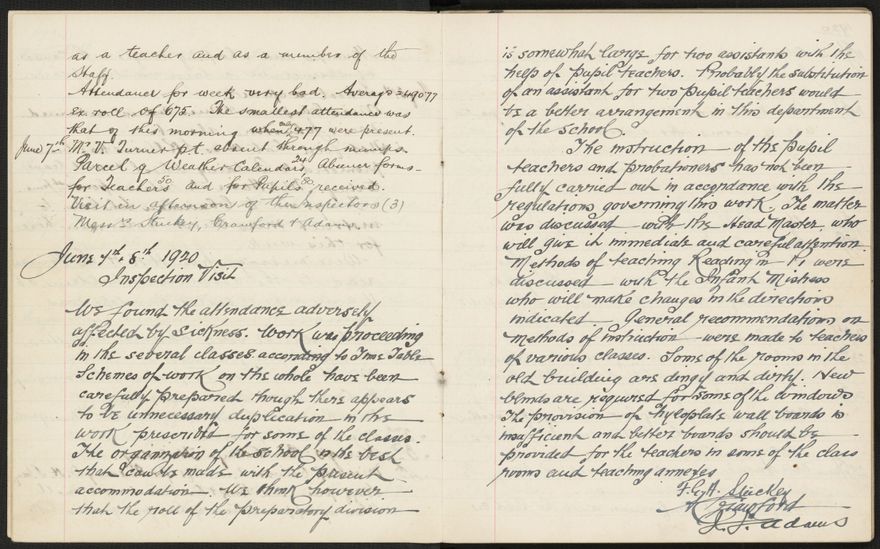 as a teacher and as a member of the
staff.
Attendance for week very bad. Average = 490.77
ex roll of 675. The smallest attendance was
that of this morning when only 477 were present.
June 7th Mr V. Turner p.t. absent through mumps.
Parcel of Weather Calendars 24, Abuner forms -
for Teachers 50 and for Pupils 50 received.
Visit in afternoon of the Inspectors (3)
Messrs Stuckey, Crawford & Adams
June 7th & 8th 1920
Inspection Visit
We found the attendance adversely
affected by sickness. Work was proceeding
in the several classes according to Time Table
Schemes of work on the whole have been
carefully prepared though there appears
to be unnecessary duplication in the
work prescribed for some of the classes.
The organization of the school is the best
that can be made with the present
accommodation. We think however
that the roll of the preparatory division
is somewhat large for two assistants with the
help of pupil teachers. Probably the substitution
of an assistant for two pupil teachers would
be a better arrangement in this department
of the school.
The instruction of the pupil
teachers and probationers has not been
fully carried out in accordance with the
regulations governing this work. The matter
was discussed with the Head Master, who
will give it immediate and careful attention
Methods of teaching Reading in P1 were
discussed with the Infant Mistress
who will make changes in the directions
indicated. General recommendations on
methods of instruction were made to teachers
of various classes. Some of the rooms in the
old building are dingy and dirty. New
blinds are required for some of the windows
The provision of hyloplate wall boards is
insufficient and better boards should be
provided for the teachers in some of the class
rooms and teaching annexes
F. G. A. Stuckey
A Crawford
J. J. Adams